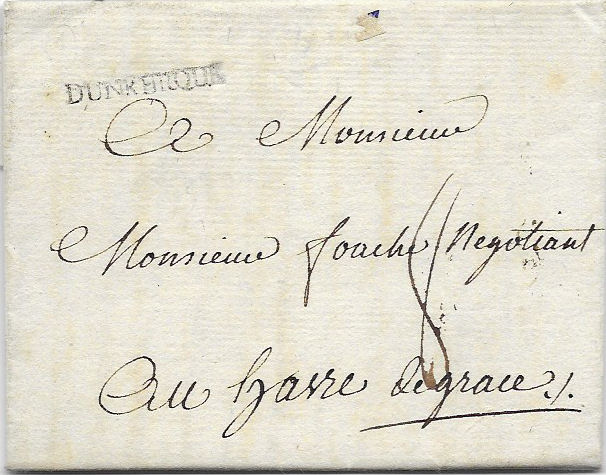 DUNKERQUE
A Monsieur
Monsieur foache Negotiant
8
Au havre degrace ./.